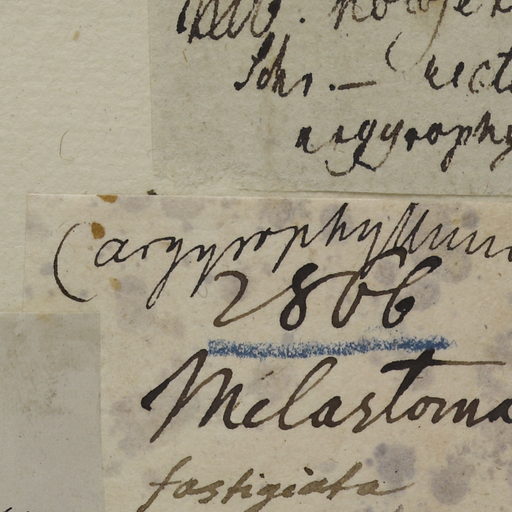 Schr. — recto
argyrophy
(argyrophyllum
2806
Melastoma
fastigiata